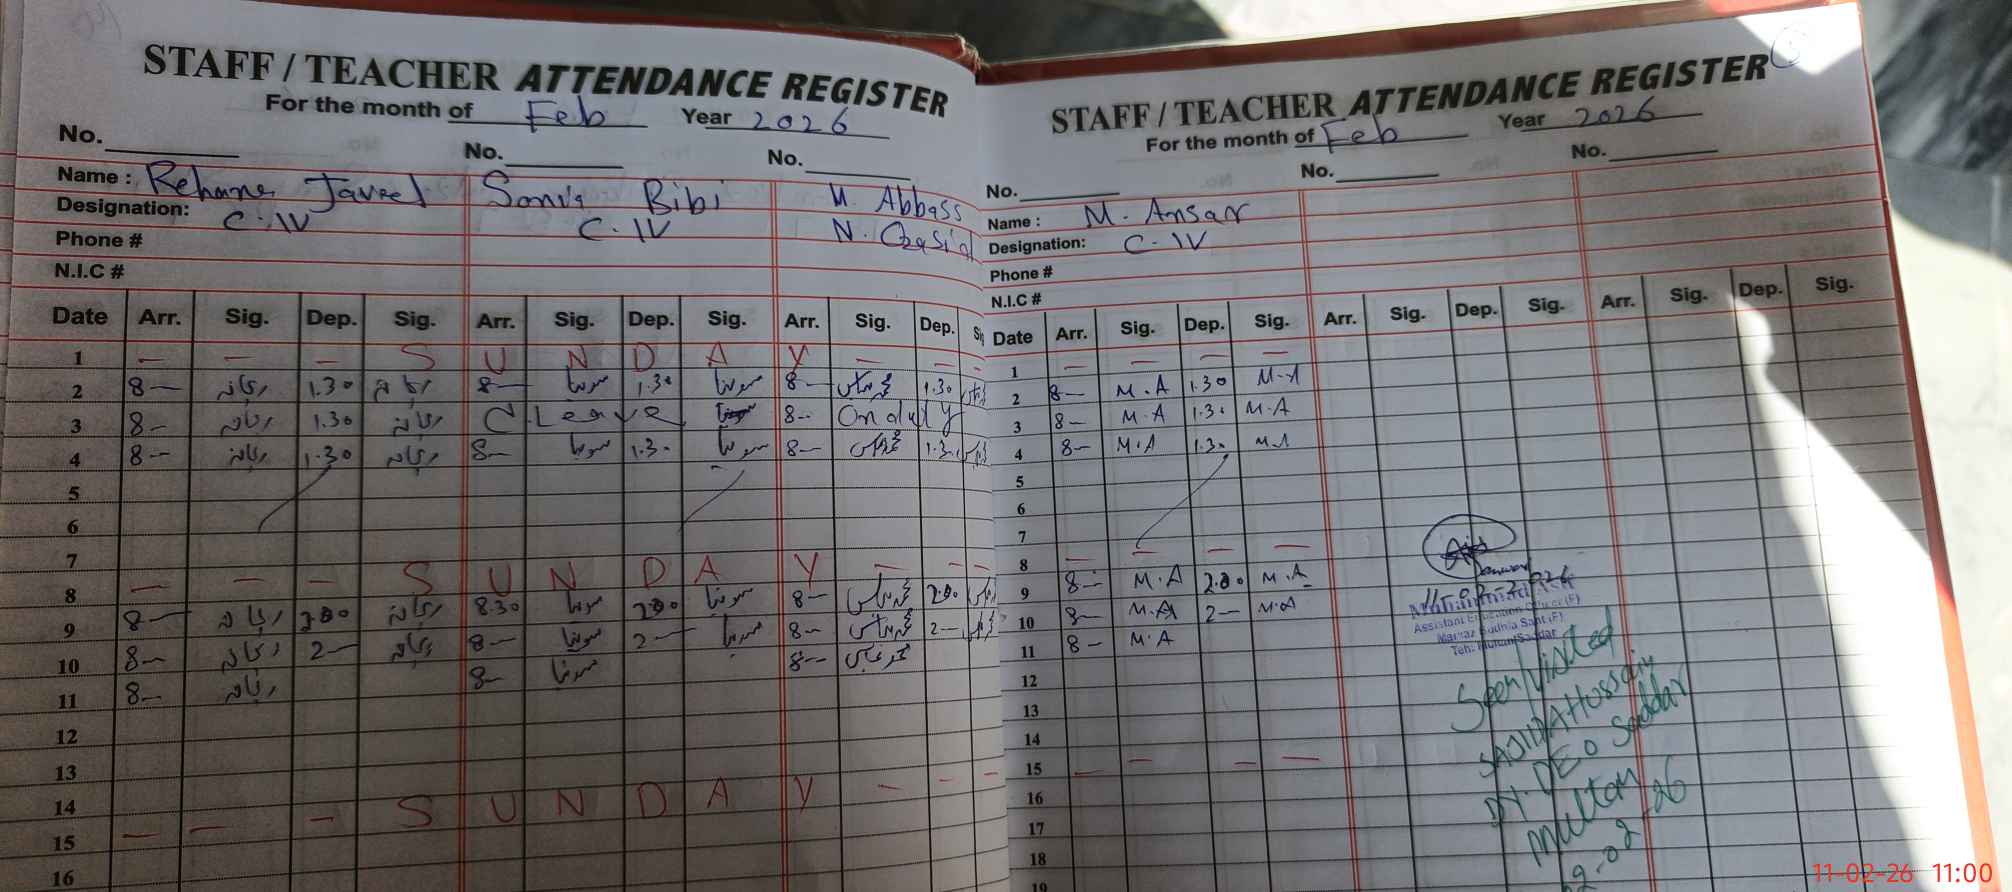 STAFF / TEACHER ATTENDANCE REGISTER
For the month of Feb Year 2026
No. No. No.
Name : Javeed Sonia Bibi M. Abbass
Designation: C.IV C.IV N.
Phone #
N.I.C #
Date Arr. Sig. Dep. Sig. Arr. Sig. Dep. Sig. Arr. Sig. Dep.
1 — — — S U N D A Y — —
2 8— ریحانہ 1.30 ریحانہ 8— سونیا 1.30 سونیا 8— 1.30
3 8— ریحانہ 1.30 ریحانہ C. Leave 8-- On duty
4 8— ریحانہ 1.30 ریحانہ 8— سونیا 1.30 سونیا 8— 1.30
5
6
7
8 — — — S U N D A Y — — —
9 8— ریحانہ 2.00 ریحانہ 8.30 سونیا 2.00 سونیا 8— 2.00
10 8— ریحانہ 2— ریحانہ 8— سونیا 2— سونیا 8— 2—
11 8— ریحانہ 8— سونیا 8--
12
13
14
15 — — — S U N D A Y — — —
16
STAFF / TEACHER ATTENDANCE REGISTER
For the month of Feb Year 2026
No. No. No.
Name : M. Ansar
Designation: C.IV
Phone #
N.I.C #
Date Arr. Sig. Dep. Sig. Arr. Sig. Dep. Sig. Arr. Sig. Dep. Sig.
1 — — — —
2 8— M.A 1.30 M.A
3 8— M.A 1.30 M.A
4 8— M.A 1.30 M.A
5
6
7
8 — — — —
9 8— M.A 2.00 M.A
10 8— M.A 2— M.A
11 8— M.A
12
13
14
15 — — — —
16
17
18
19
Assistant Education Officer (F)
Markaz Budhla Sant (F)
Teh: Multan Saddar
Seen/Visited
SAJIDA Hussain
DY. DEO Saddar
Multan
11-02-26 11:00